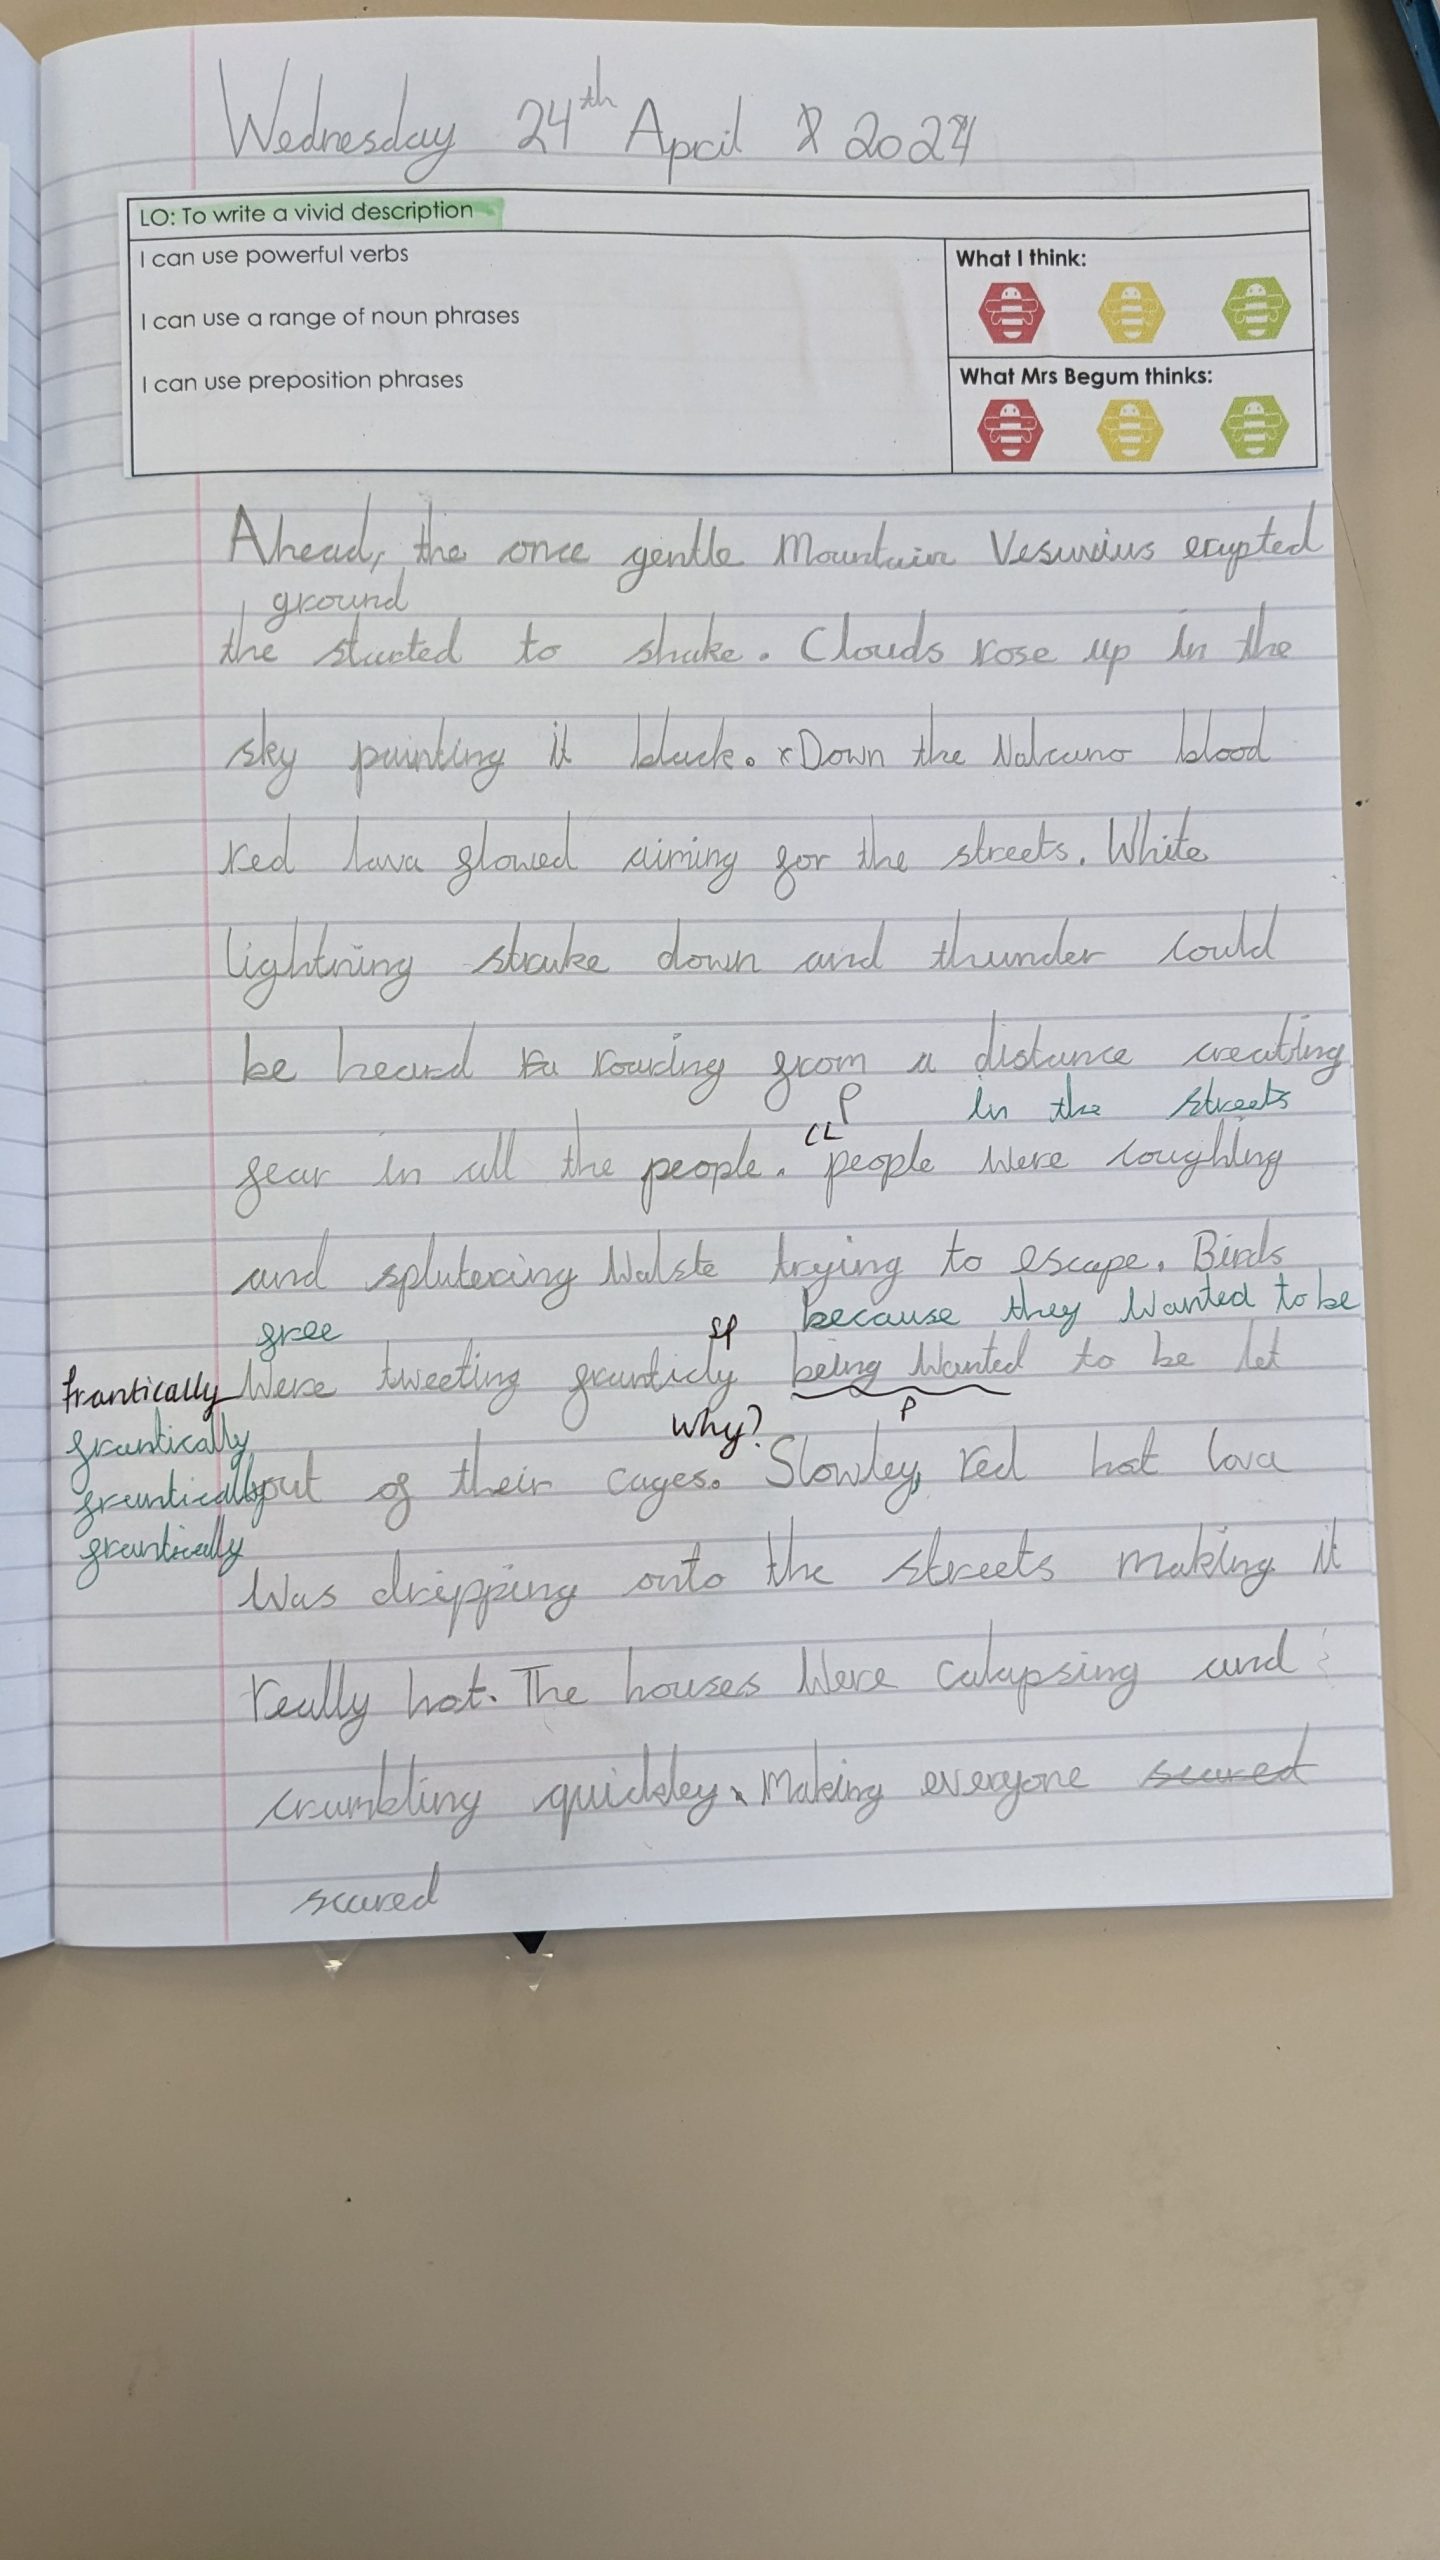 Wednesday 24th April 2024
LO: To write a vivid description
I can use powerful verbs
What I think:
I can use a range of noun phrases
I can use preposition phrases
What Mrs Begum thinks:
Ahead, the once gentle Mountain Vesuvius erupted
ground
the started to shake. Clouds rose up in the
sky painting it black. Down the Valcano blood
red lava glowed aiming for the streets. White
lightning strake down and thunder could
be heard ra roaring from a distance creatiing
P in the streets
CL
fear in all the people. people were coughing
and splutering walste trying to escape. Birds
free sp because they wanted to be
frantically were tweeting franticly being wanted to be let
why? P
frantically
frantically out of their cages. Slowley, red hot lava
frantically
was dripping onto the streets making it
really hot. The houses were calapsing and
crumbling quickley, making everyone scared
scared